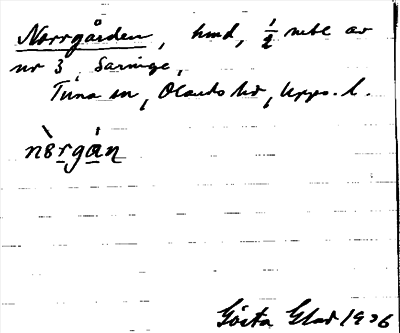 Norrgården, hmd, 1/2 mtl av
nr 3, Saringe,
Tuna sn, Olands hd, Upps. l.
Gösta Glad 1936